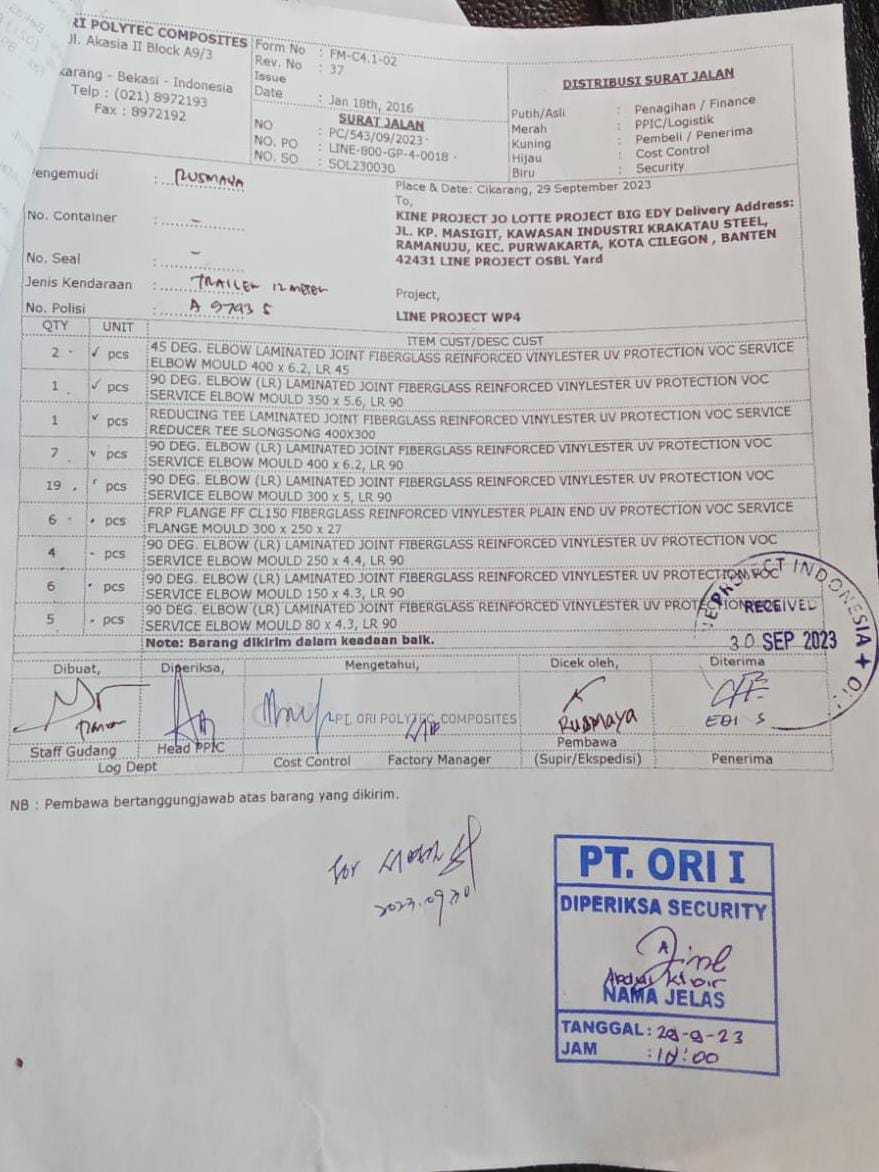 RI POLYTEC COMPOSITES
Jl. Akasia II Block A9/3
karang - Bekasi - Indonesia
Telp : (021) 8972193
Fax : 8972192
Form No : FM-C4.1-02
Rev. No : 37
Issue
Date : Jan 18th, 2016
SURAT JALAN
NO : PC/543/09/2023
NO. PO : LINE-800-GP-4-0018
NO. SO : SOL230030
DISTRIBUSI SURAT JALAN
Putih/Asli : Penagihan / Finance
Merah : PPIC/Logistik
Kuning : Pembeli / Penerima
Hijau : Cost Control
Biru : Security
engemudi : RUSMAYA
No. Container : -
No. Seal : -
Jenis Kendaraan : TRAILER 12 METER
No. Polisi : A 9793 S
Place & Date: Cikarang, 29 September 2023
To,
KINE PROJECT JO LOTTE PROJECT BIG EDY Delivery Address:
JL. KP. MASIGIT, KAWASAN INDUSTRI KRAKATAU STEEL,
RAMANUJU, KEC. PURWAKARTA, KOTA CILEGON , BANTEN
42431 LINE PROJECT OSBL Yard
Project,
LINE PROJECT WP4
QTY UNIT ITEM CUST/DESC CUST
2 pcs 45 DEG. ELBOW LAMINATED JOINT FIBERGLASS REINFORCED VINYLESTER UV PROTECTION VOC SERVICE
ELBOW MOULD 400 x 6.2, LR 45
1 pcs 90 DEG. ELBOW (LR) LAMINATED JOINT FIBERGLASS REINFORCED VINYLESTER UV PROTECTION VOC
SERVICE ELBOW MOULD 350 x 5.6, LR 90
1 pcs REDUCING TEE LAMINATED JOINT FIBERGLASS REINFORCED VINYLESTER UV PROTECTION VOC SERVICE
REDUCER TEE SLONGSONG 400X300
7 pcs 90 DEG. ELBOW (LR) LAMINATED JOINT FIBERGLASS REINFORCED VINYLESTER UV PROTECTION VOC
SERVICE ELBOW MOULD 400 x 6.2, LR 90
19 pcs 90 DEG. ELBOW (LR) LAMINATED JOINT FIBERGLASS REINFORCED VINYLESTER UV PROTECTION VOC
SERVICE ELBOW MOULD 300 x 5, LR 90
6 pcs FRP FLANGE FF CL150 FIBERGLASS REINFORCED VINYLESTER PLAIN END UV PROTECTION VOC SERVICE
FLANGE MOULD 300 x 250 x 27
4 pcs 90 DEG. ELBOW (LR) LAMINATED JOINT FIBERGLASS REINFORCED VINYLESTER UV PROTECTION VOC
SERVICE ELBOW MOULD 250 x 4.4, LR 90
6 pcs 90 DEG. ELBOW (LR) LAMINATED JOINT FIBERGLASS REINFORCED VINYLESTER UV PROTECTION VOC
SERVICE ELBOW MOULD 150 x 4.3, LR 90
5 pcs 90 DEG. ELBOW (LR) LAMINATED JOINT FIBERGLASS REINFORCED VINYLESTER UV PROTECTION
SERVICE ELBOW MOULD 80 x 4.3, LR 90
Note: Barang dikirim dalam keadaan baik.
INDONESIA
RECEIVED
30 SEP 2023
Dibuat, Diperiksa, Mengetahui, Dicek oleh, Diterima
PT ORI POLYTEC COMPOSITES
Rusmaya
EDI S
Staff Gudang Head PPIC Cost Control Factory Manager Pembawa Penerima
(Supir/Ekspedisi)
Log Dept
NB : Pembawa bertanggungjawab atas barang yang dikirim.
for
2023.09.30
PT. ORI I
DIPERIKSA SECURITY
NAMA JELAS
TANGGAL : 29-9-23
JAM :